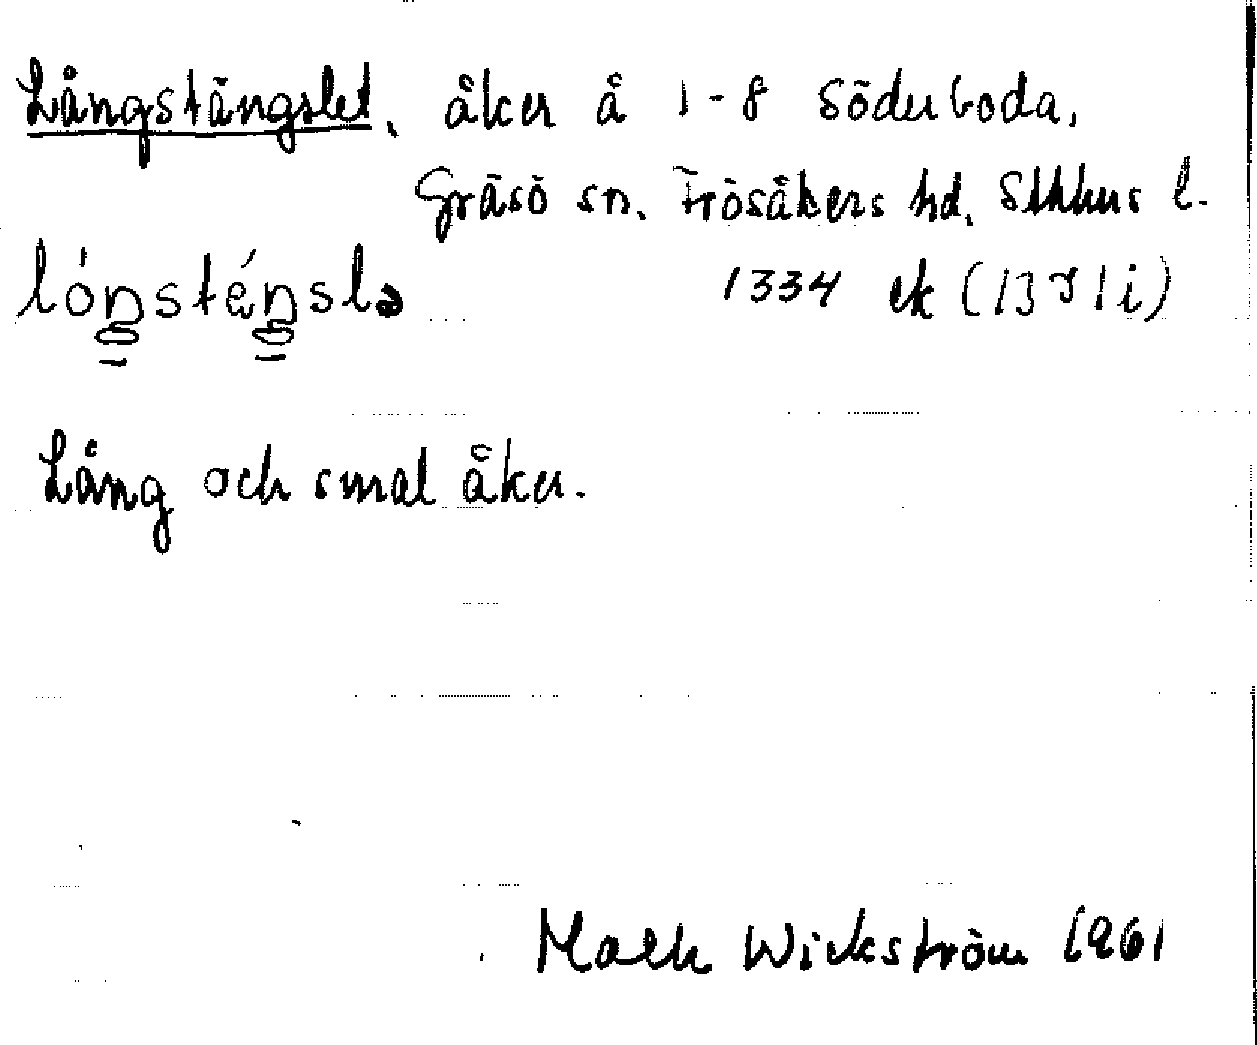 Långstängslet, åker å 1-8 Söderboda,
Gräsö sn. Frösåkers hd. Sthlms l.
lóŋsténsla 1334 ek (1391i)
Lång och smal åker.
Wickström 1961